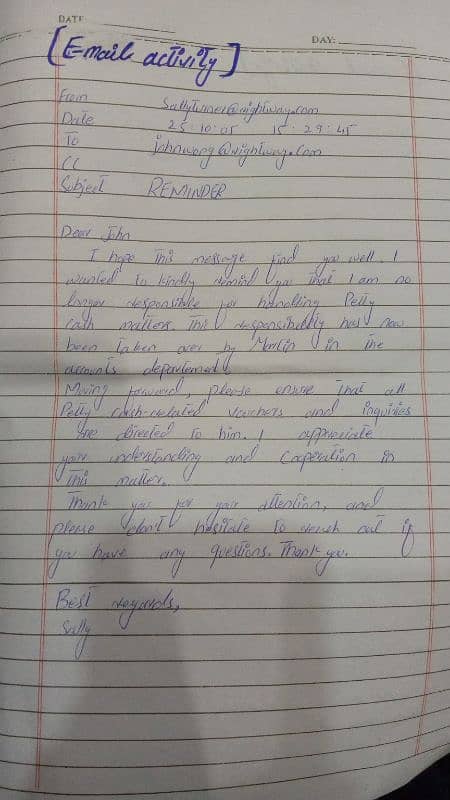 DATE
DAY:
[Email activity]
From sallyturner@rightway.com
Date 25.10.05 15:29:45
To johnwong@rightway.com
CC
Subject REMINDER
Dear John
I hope this message find you well. I
wanted to kindly remind you that I am no
longer responsible for handling Petty
cash matters. This responsibility has now
been taken over by Martin in the
accounts departement.
Moving forward, please ensure that all
Petty cash-related vouchers and inquiries
are directed to him. I appreciate
your understanding and cooperation in
this matter.
Thank you for your attention, and
please don't hesitate to reach out if
you have any questions. Thank you.
Best regards,
Sally